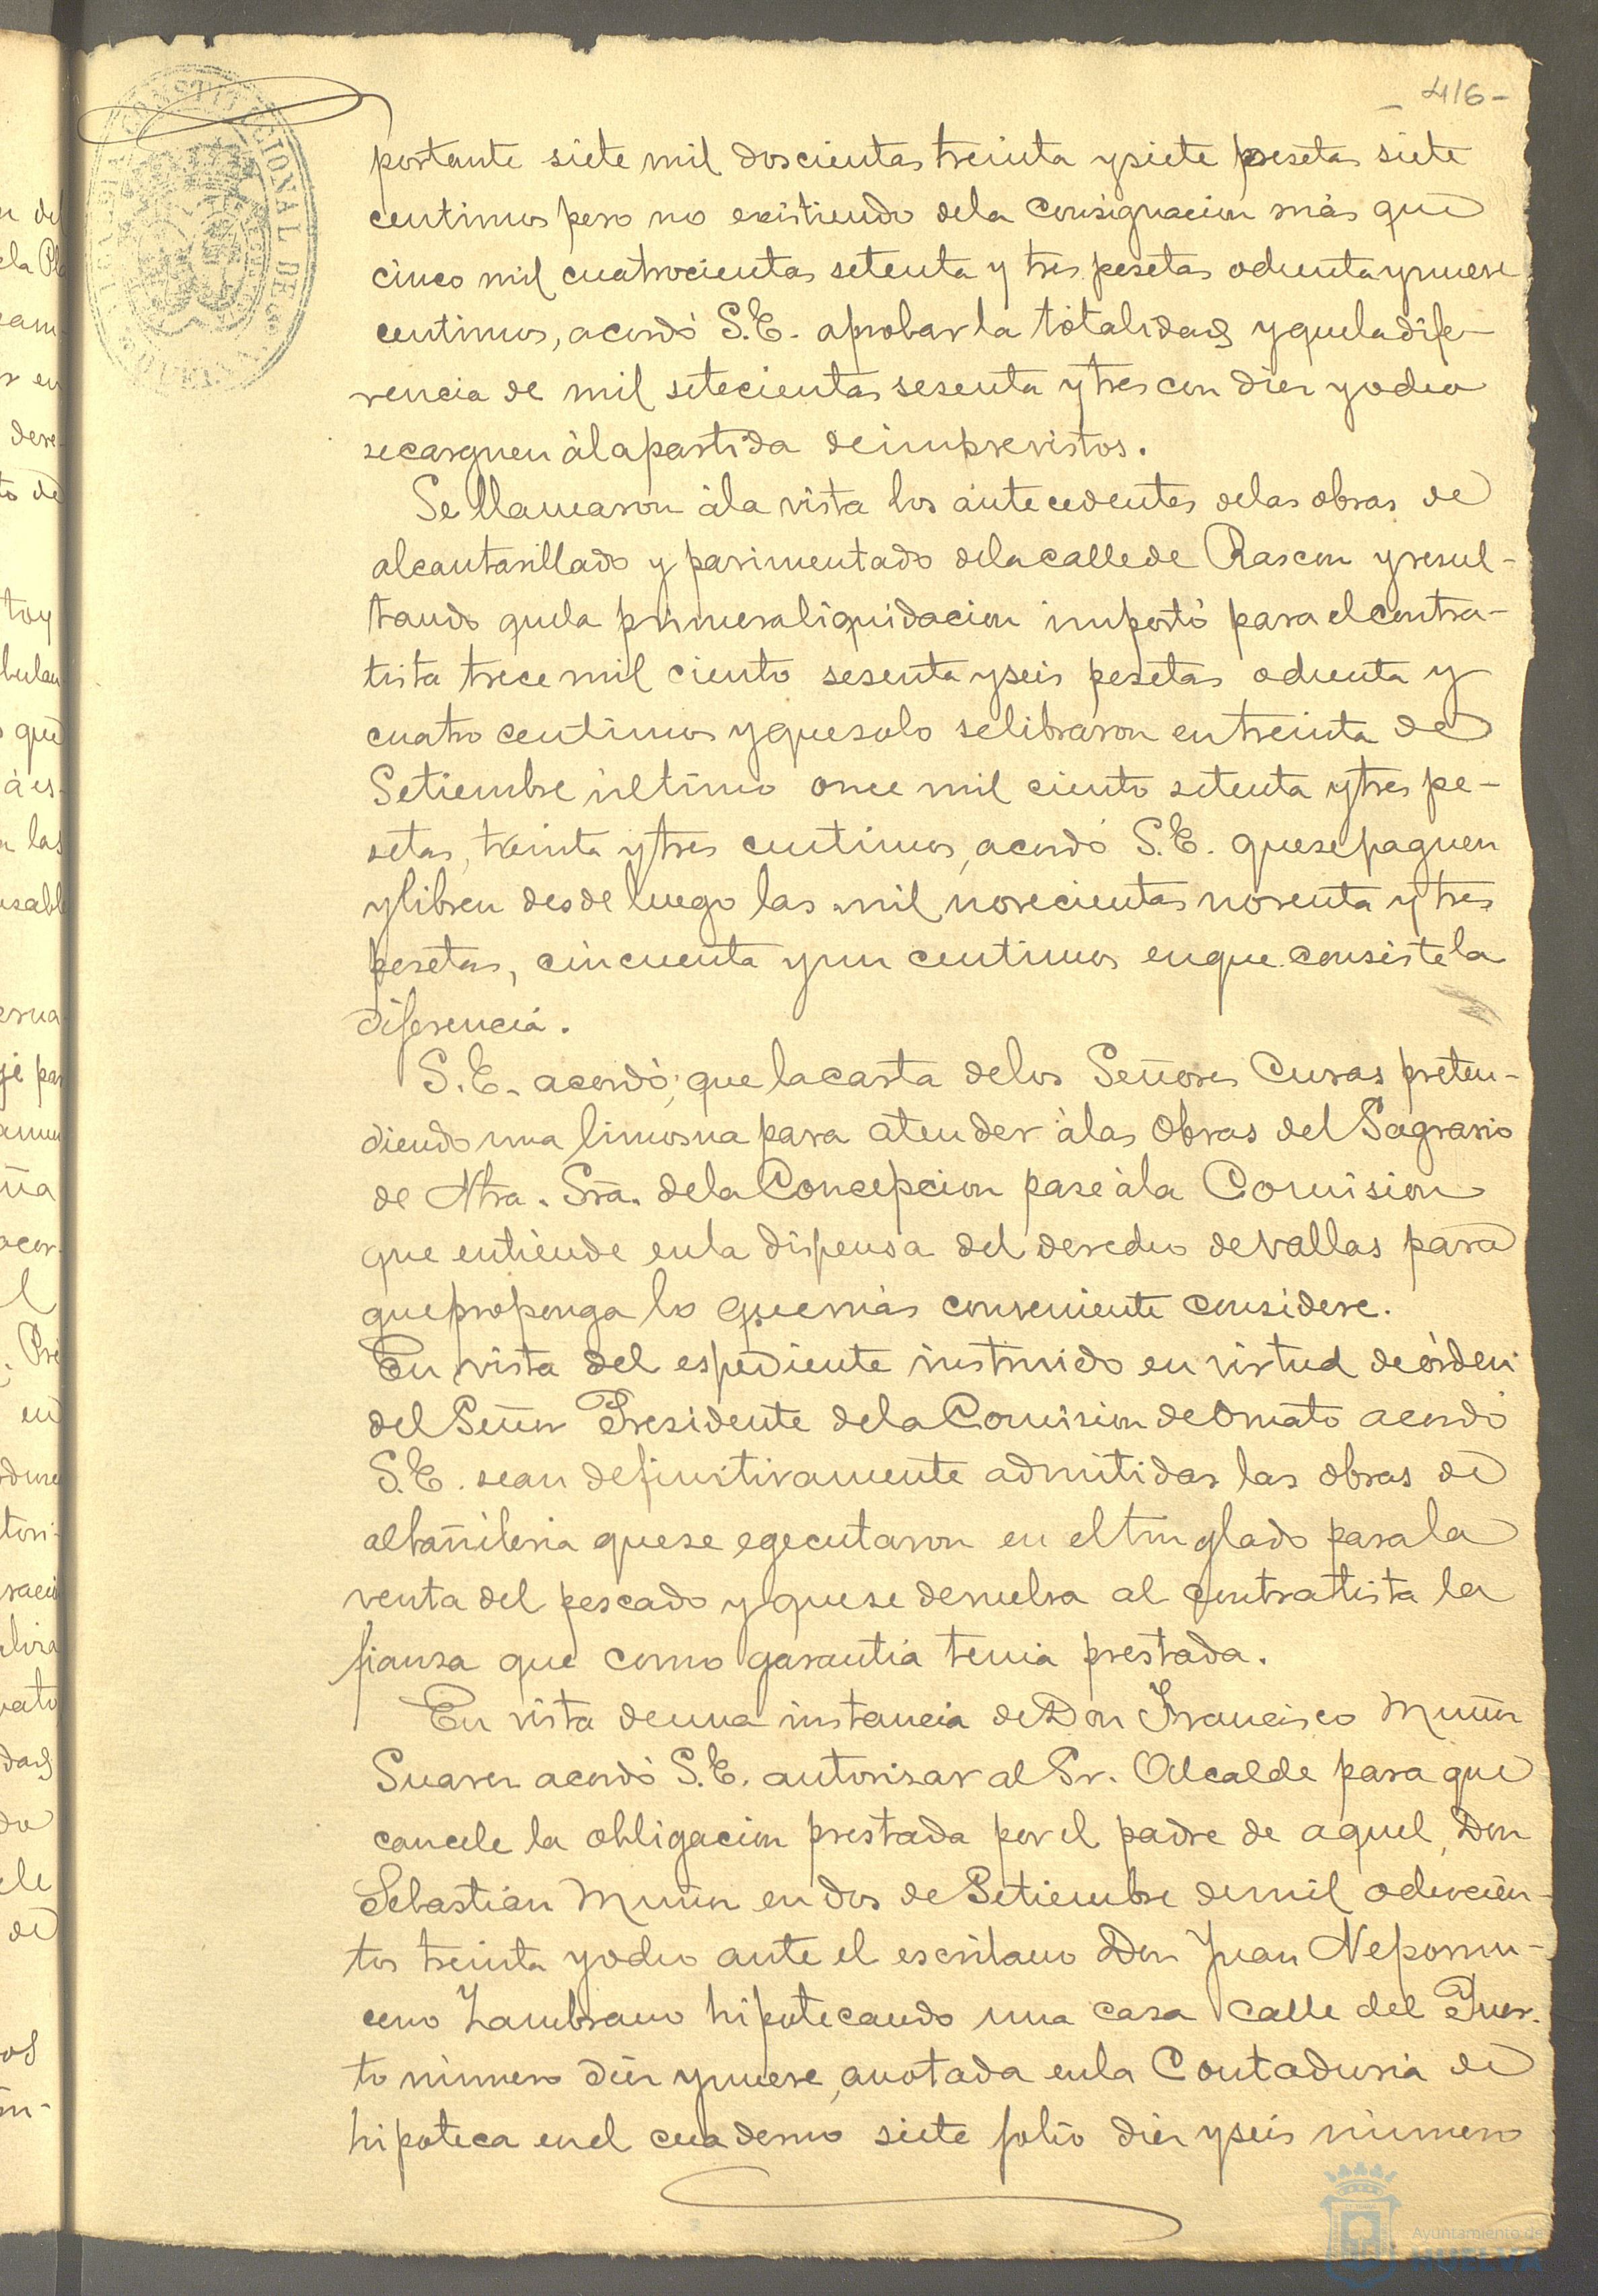 - 416 -
portante siete mil doscientas treinta y siete pesetas siete
centimos pero no existiendo de la consignacion más que
cinco mil cuatrocientas setenta y tres pesetas ochenta y nueve
centimos, acordó S.E. aprobar la totalidad y que la dife-
rencia de mil setecientas sesenta y tres con diez y ocho
se carguen à la partida de imprevistos.
Se llamaron à la vista los antecedentes de las obras de
alcantarillado y pavimentado de la calle de Rascon y resul-
tando que la primera liquidacion importó para el contra-
tista trece mil ciento sesenta y seis pesetas ochenta y
cuatro centimos y que solo se libraron en treinta de
Setiembre último once mil ciento setenta y tres pe-
setas, treinta y tres centimos, acordó S.E. que se paguen
y libren desde luego las mil novecientas noventa y tres
pesetas, cincuenta y un centimos en que consiste la
diferencia.
S.E. acordó, que la carta de los Señores Curas preten-
diendo una limosna para atender à las obras del Sagrario
de Ntra. Sra. de la Concepcion pase à la Comision
que entiende en la dispensa del derecho de vallas para
que proponga lo que más conveniente considere.
En vista del espediente instruido en virtud de órden
del Señor Presidente de la Comision de Ornato acordó
S.E. sean definitivamente admitidas las obras de
albañileria que se egecutaron en el tinglado para la
venta del pescado y que se devuelva al contratista la
fianza que como garantia tenia prestada.
En vista de una instancia de Don Francisco Muñoz
Suarez acordó S.E. autorizar al Sr. Alcalde para que
cancele la obligacion prestada por el padre de aquel, Don
Sebastián Muñoz en dos de Setiembre de mil ochocien-
tos treinta y ocho ante el escribano Don Juan Nepomu-
ceno Zambrano hipotecando una casa calle del Puer-
to número diez y nueve, anotada en la Contaduria de
hipoteca en el cuaderno siete folio diez y seis número
CONSTITUCIONAL DE
Ayuntamiento de
HUELVA